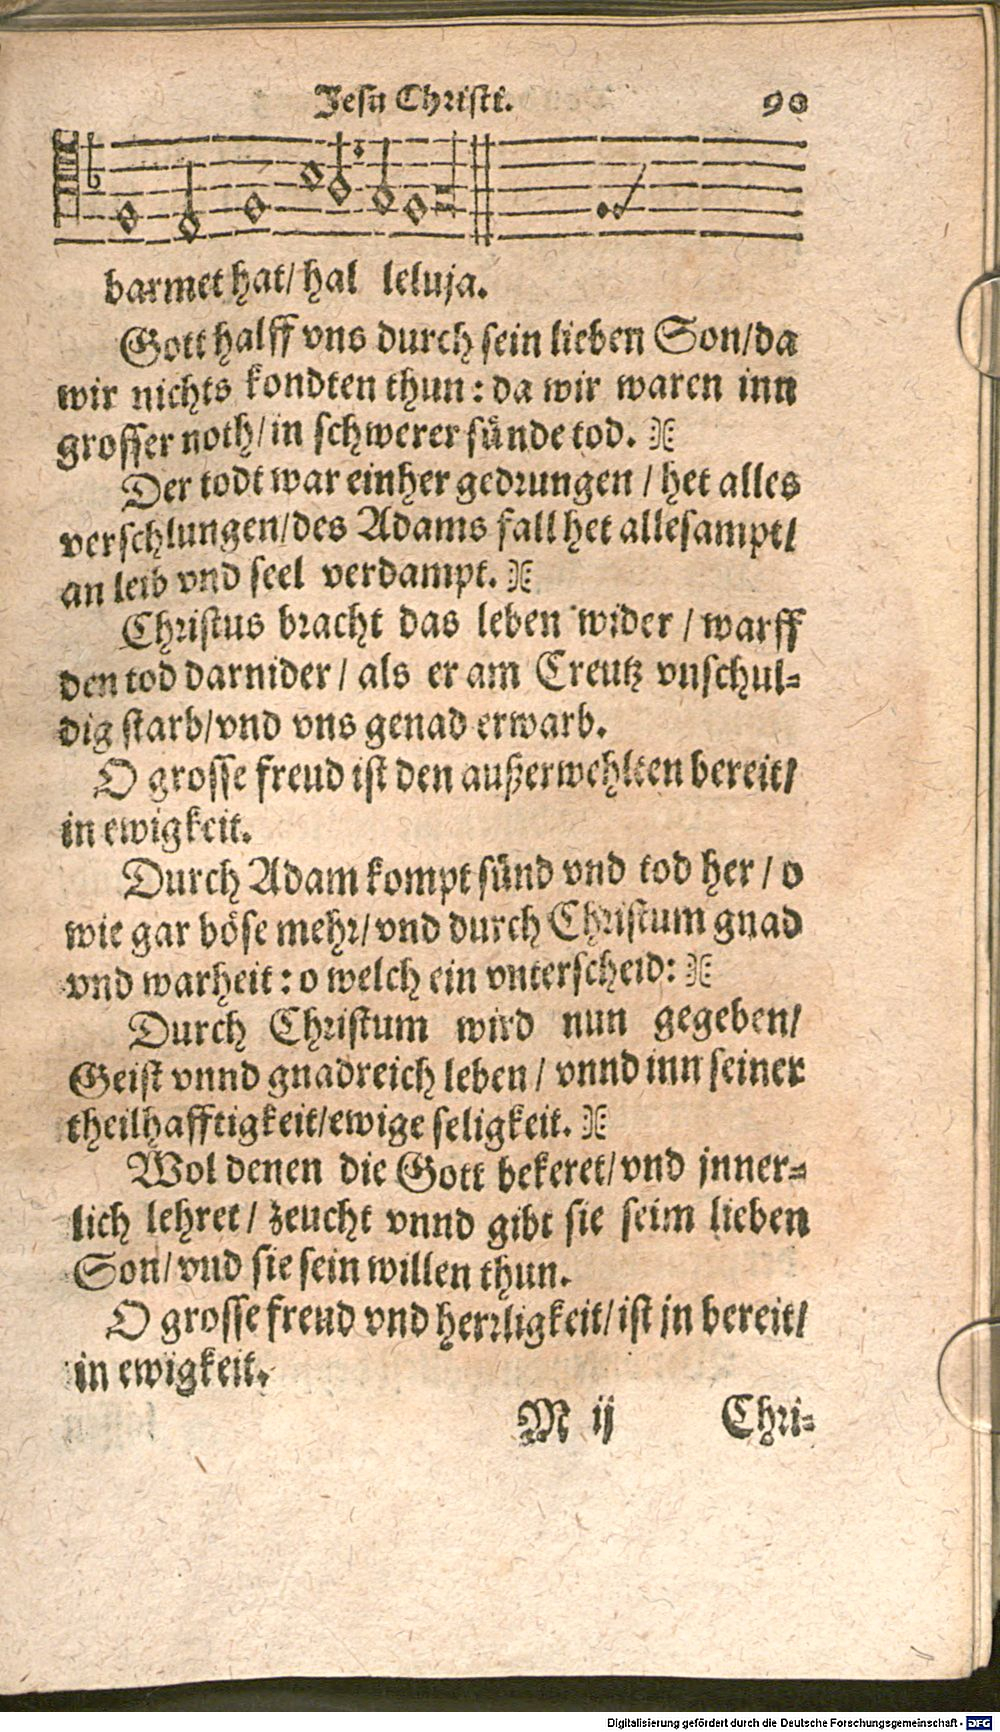 Jesu Christi. 90
barmet hat/ hal leluja.
Gott halff vns durch sein lieben Son/da
wir nichts kondten thun: da wir waren inn
grosser noth/in schwerer sünde tod.
Der todt war einher gedrungen / het alles
verschlungen/des Adams fall het allesampt/
an leib vnd seel verdampt.
Christus bracht das leben wider / warff
den tod darnider / als er am Creutz vnschul-
dig starb/vnd vns genad erwarb.
O grosse freud ist den außerwehlten bereit/
in ewigkeit.
Durch Adam kompt sünd vnd tod her / o
wie gar böse mehr/vnd durch Christum gnad
vnd warheit: o welch ein vnterscheid:
Durch Christum wird nun gegeben/
Geist vnnd gnadreich leben / vnnd inn seiner
theilhafftigkeit/ewige seligkeit.
Wol denen die Gott bekeret/vnd jnner-
lich lehret / zeucht vnnd gibt sie seim lieben
Son/vnd sie sein willen thun.
O grosse freud vnd herrligkeit/ist jn bereit/
in ewigkeit.
M ij Chri-
Digitalisierung gefördert durch die Deutsche Forschungsgemeinschaft - DFG